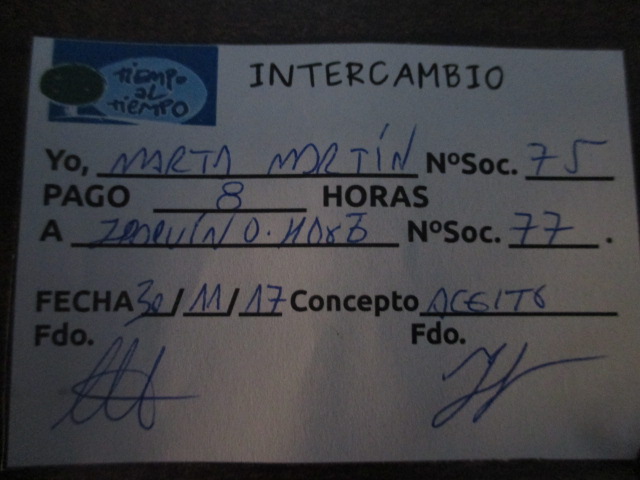 TIEMPO
AL
TIEMPO
INTERCAMBIO
Yo, MARTA MARTÍN NºSoc. 75
PAGO 8 HORAS
A NºSoc. 77.
FECHA 30/11/17 Concepto ACEITE
Fdo. Fdo.